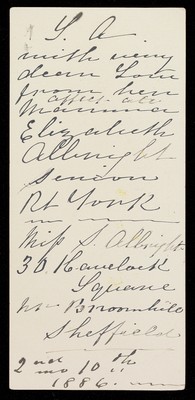 S. A.
with very
dear Love
from her
affec. ate
Mamma
Elizabeth
Albright
Senior
Rt York
Miss S. Albright
30 Havelock
Square
nr Broomhill
Sheffield
2nd mo 10th
1886.